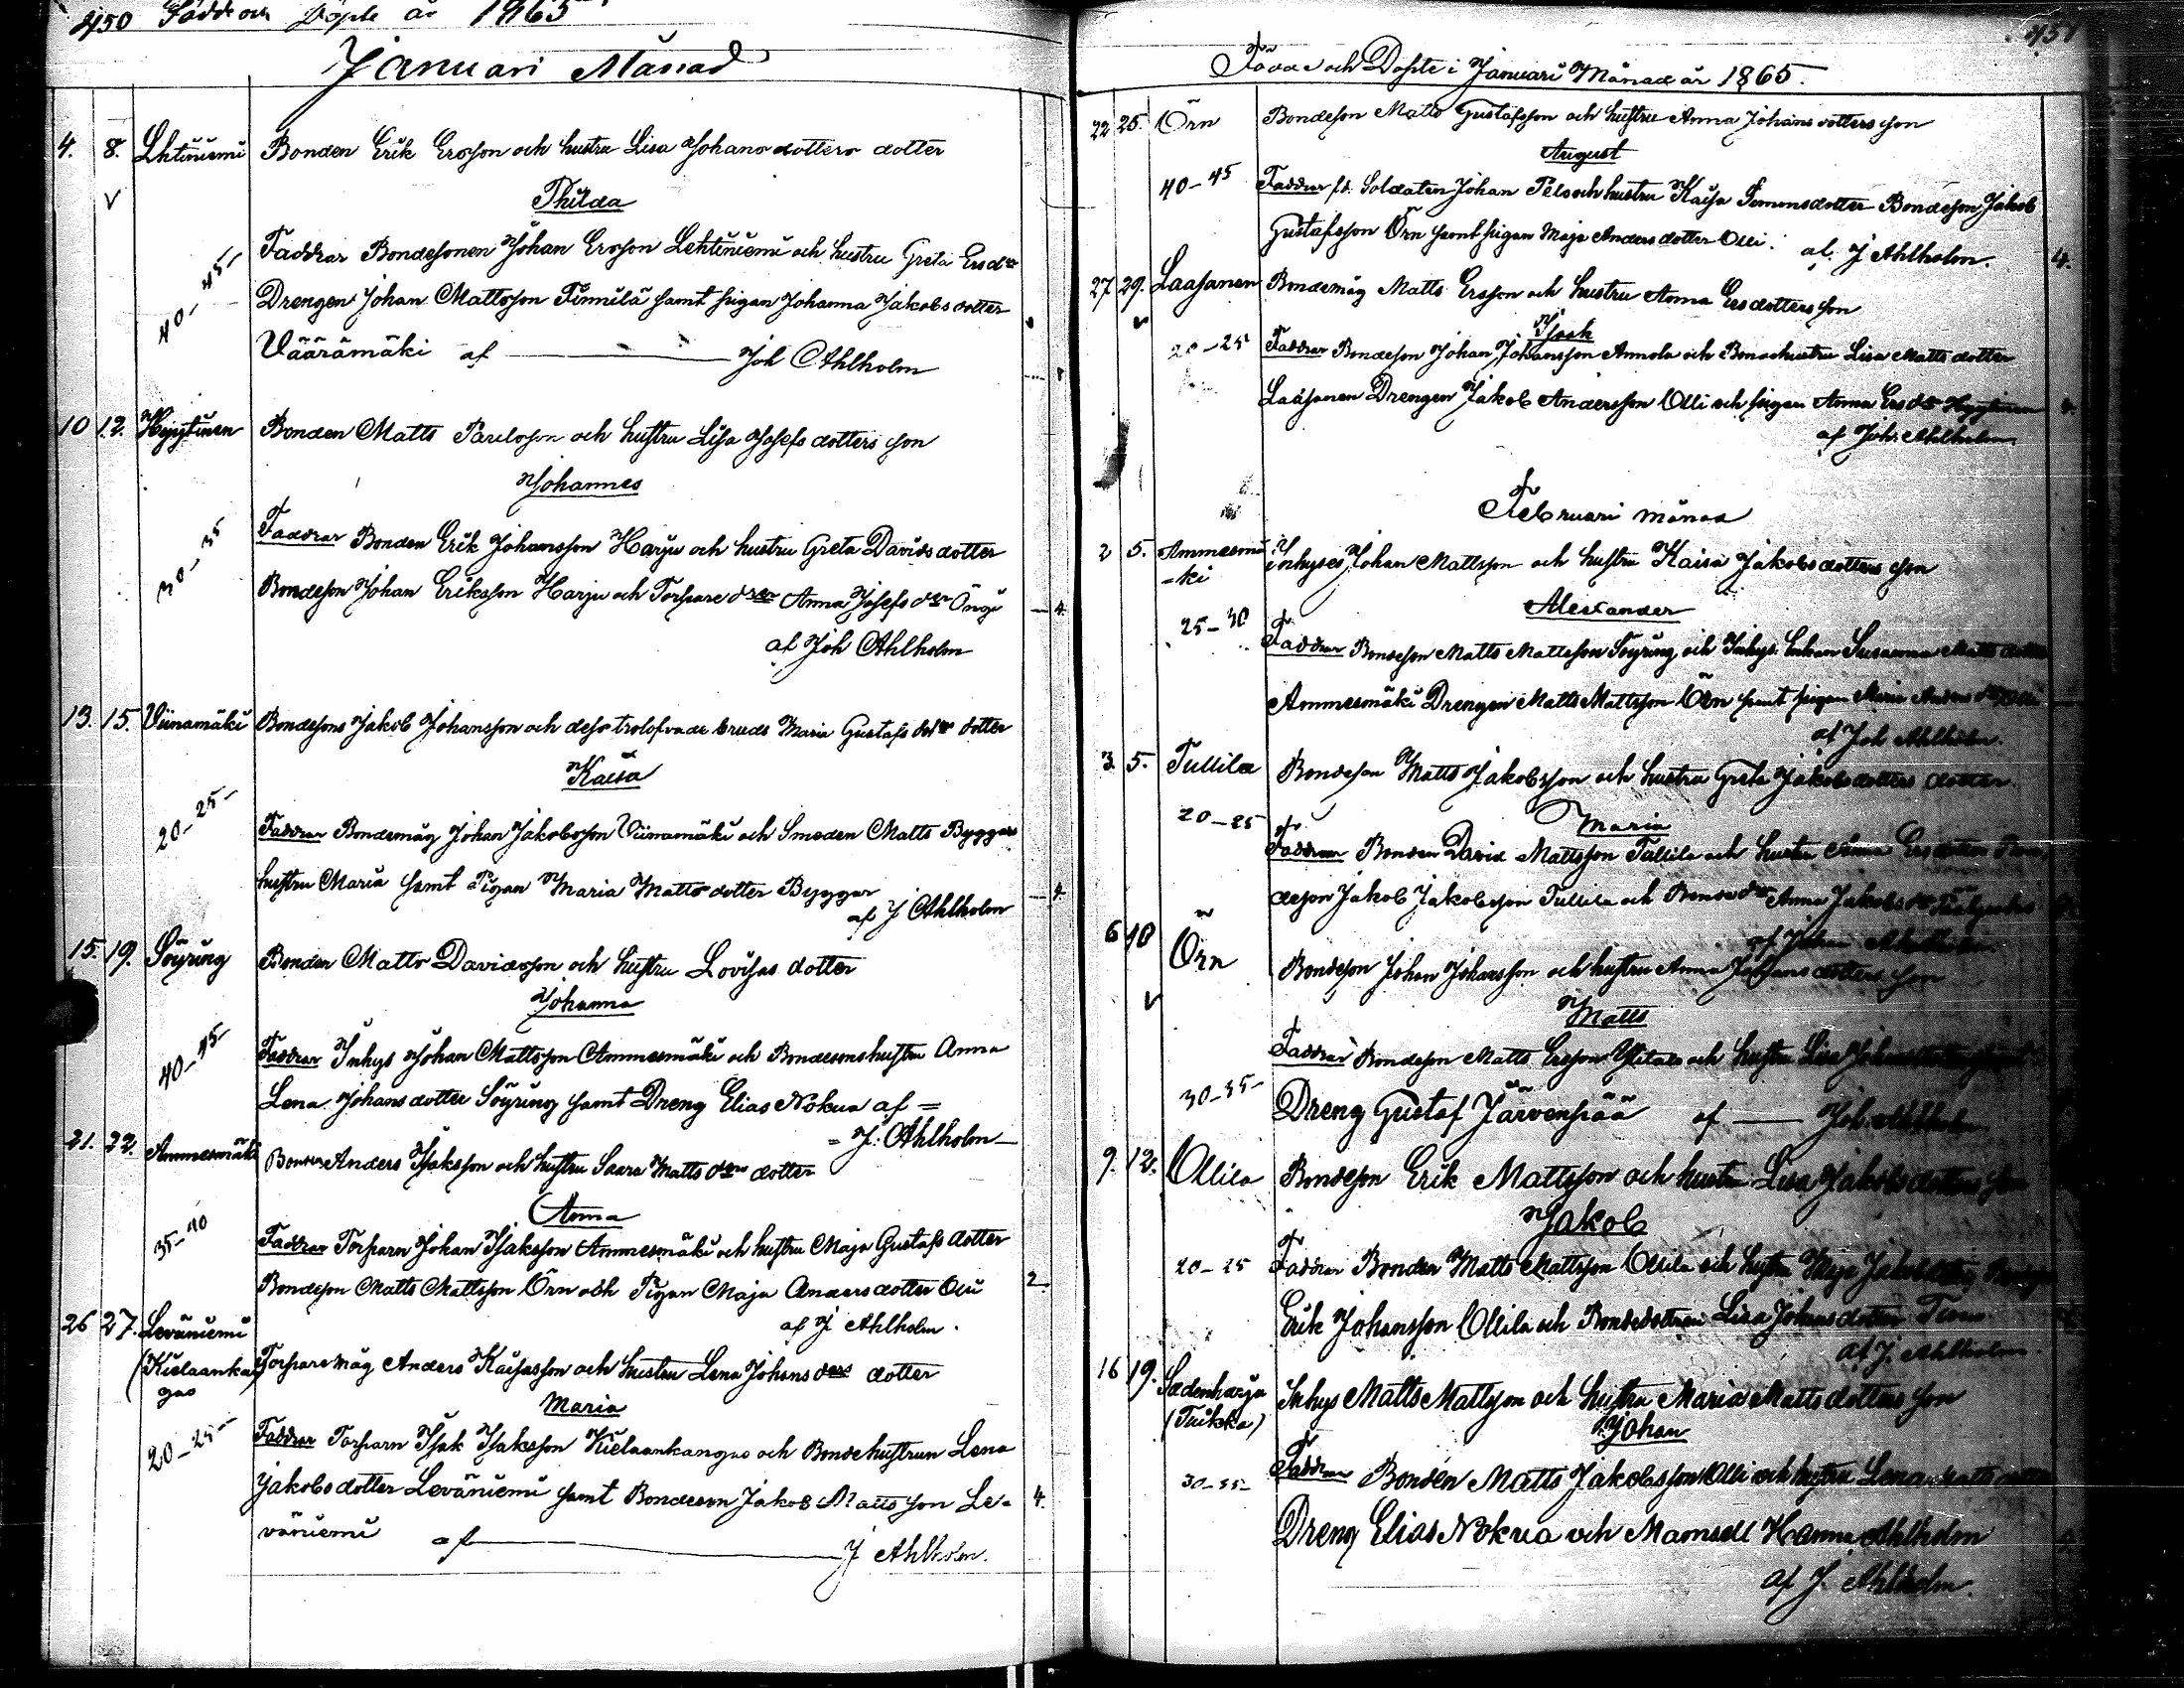 450 Födde och Döpte år 1865
Januari Månad
4. 8. Lhtiniemi Bonden Erik Ersson och hustru Lisa Johans dotters dotter
Thilda
40-45- Faddrar Bondesonen Johan Ersson Lehtiniemi och hustru Greta Ersdr
Drengen Johan Mattsson Finnilä samt pigan Johanna Jakobs dotter
Väärämäki af Joh Ahlholm
10 12. Hyytinen Bonden Matts Parelsson och hustru Lisa Josefs dotters son
Johannes
30-35 Faddrar Bonden Erik Johansson Harju och hustru Greta Davids dotter
Bondeson Johan Eriksson Harju och Torpare dren Anna Josefs dr Öngi 4.
af Joh Ahlholm
13. 15. Viinamäki Bondesons Jakob Johansson och dess trolofvade bruds Maria Gustafs dotr dotter
Kaisa
20-25- Faddrar Bondemåg Johan Jakobsson Viinamäki och Smeden Matts Byggars
hustru Maria samt Pigan Maria Matts dotter Byggar 4.
af J Ahlholm
15. 19. Söyring Bonden Matts Davidsson och hustru Lovisas dotter
Johanna
40-45- Faddrar Inhys Johan Mattsson Ammesmäki och Bondesons hustru Anna
Lena Johans dotter Söyring samt Dreng Elias Nokua af =
= J. Ahlholm
21. 22. Ammesmäki Bonden Anders Isaksson och hustru Saara Matts drs dotter
Anna
35-40 Faddrar Torparn Johan Isaksson Ammesmäki och hustru Maja Gustafs dotter
Bondeson Matts Mattsson Örn och Pigan Maja Anders dotter Olli 2
af J Ahlholm.
26 27. Leväniemi
(Kielaankangas) Torparemåg Anders Kaisasson och hustru Lena Johans drs dotter
Maria
20-25- Faddrar Torparn Isak Isaksson Kielaankangas och Bondehustrun Lena
Jakobs dotter Leväniemi samt Bondeson Jakob Mattsson Le- 4.
väniemi af J Ahlholm.
451
Födde och Döpte i Januari Månad år 1865.
22 25. Örn Bondeson Matts Gustafsson och hustru Anna Johans dotters son
August
40-45 Faddrar fd. Soldaten Johan Pels och hustru Kaisa Simonsdotter Bondeson Jakob
Gustafsson Örn samt pigan Maja Anders dotter Olli. af. J Ahlholm. 4.
27 29. Laasanen Bondemåg Matts Ersson och hustru Anna Ersdotters son
Isak
20-25 Faddrar Bondeson Johan Johansson Annola och Bondehustru Lisa Matts dotter
Laasanen Drengen Jakob Andersson Olli och pigan Anna Ersdr Hyytinen
af Joh. Ahlholm
Februari månad
2 5. Ammesmä
-ki Inhyses Johan Mattsson och hustru Kaisa Jakobs dotters son
Alexander
25-30 Faddrar Bondeson Matts Mattsson Söyring och Inhys. Enkan Susanna Matts dotter
Ammesmäki Drengen Matts Mattsson Örn samt pigan Maria Anders
af Joh Ahlholm.
3. 5. Tullila Bondeson Matts Jakobsson och hustru Greta Jakobs dotters dotter
Maria
20-25 Faddrar Bonden David Mattsson Tullila och hustru Anna Ersdotter Bon
deson Jakob Jakobsson Tullila och Bonde dr Anna Jakobs dr
af Johan Ahlholm
6 10 Örn Bondeson Johan Johansson och hustru Anna Johans dotters son
Matts
Faddrar Bondeson Matts Ersson Ylitalo och hustru Lisa Johans
30-35- Dreng Gustaf Järvenpää af Joh. Ahlholm
9. 12. Ollila Bondeson Erik Mattsson och hustru Lisa Jakobs dotters son
Jakob
20-25 Faddrar Bonden Matts Mattsson Ollila och hustru Maja
Erik Johansson Ollila och Bondedottren Lisa Johans dotter
af J. Ahlholm.
16 19. Sadenharju
(Tuikka) Inhys Matts Mattsson och hustru Maria Matts dotters son
Johan
30-35- Faddrar Bonden Matts Jakobsson Olli och hustru Lena Matts dotter
Dreng Elias Nokua och Mamsell Hanna Ahlholm
af J. Ahlholm.